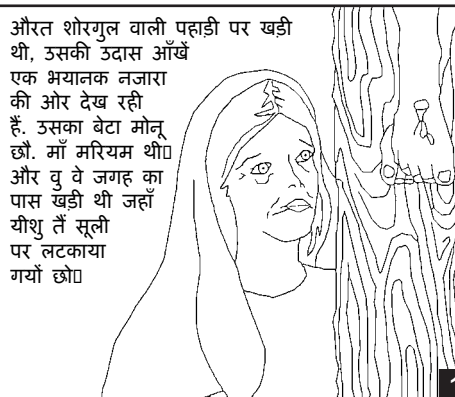 औरत शोरगुल वाली पहाड़ी पर खड़ी
थी, उसकी उदास आँखें
एक भयानक नजारा
की ओर देख रही
हैं. उसका बेटा मोनू
छौ. माँ मरियम थी▯
और वु वे जगह का
पास खड़ी थी जहाँ
यीशु तैं सूली
पर लटकाया
गयों छो▯
1